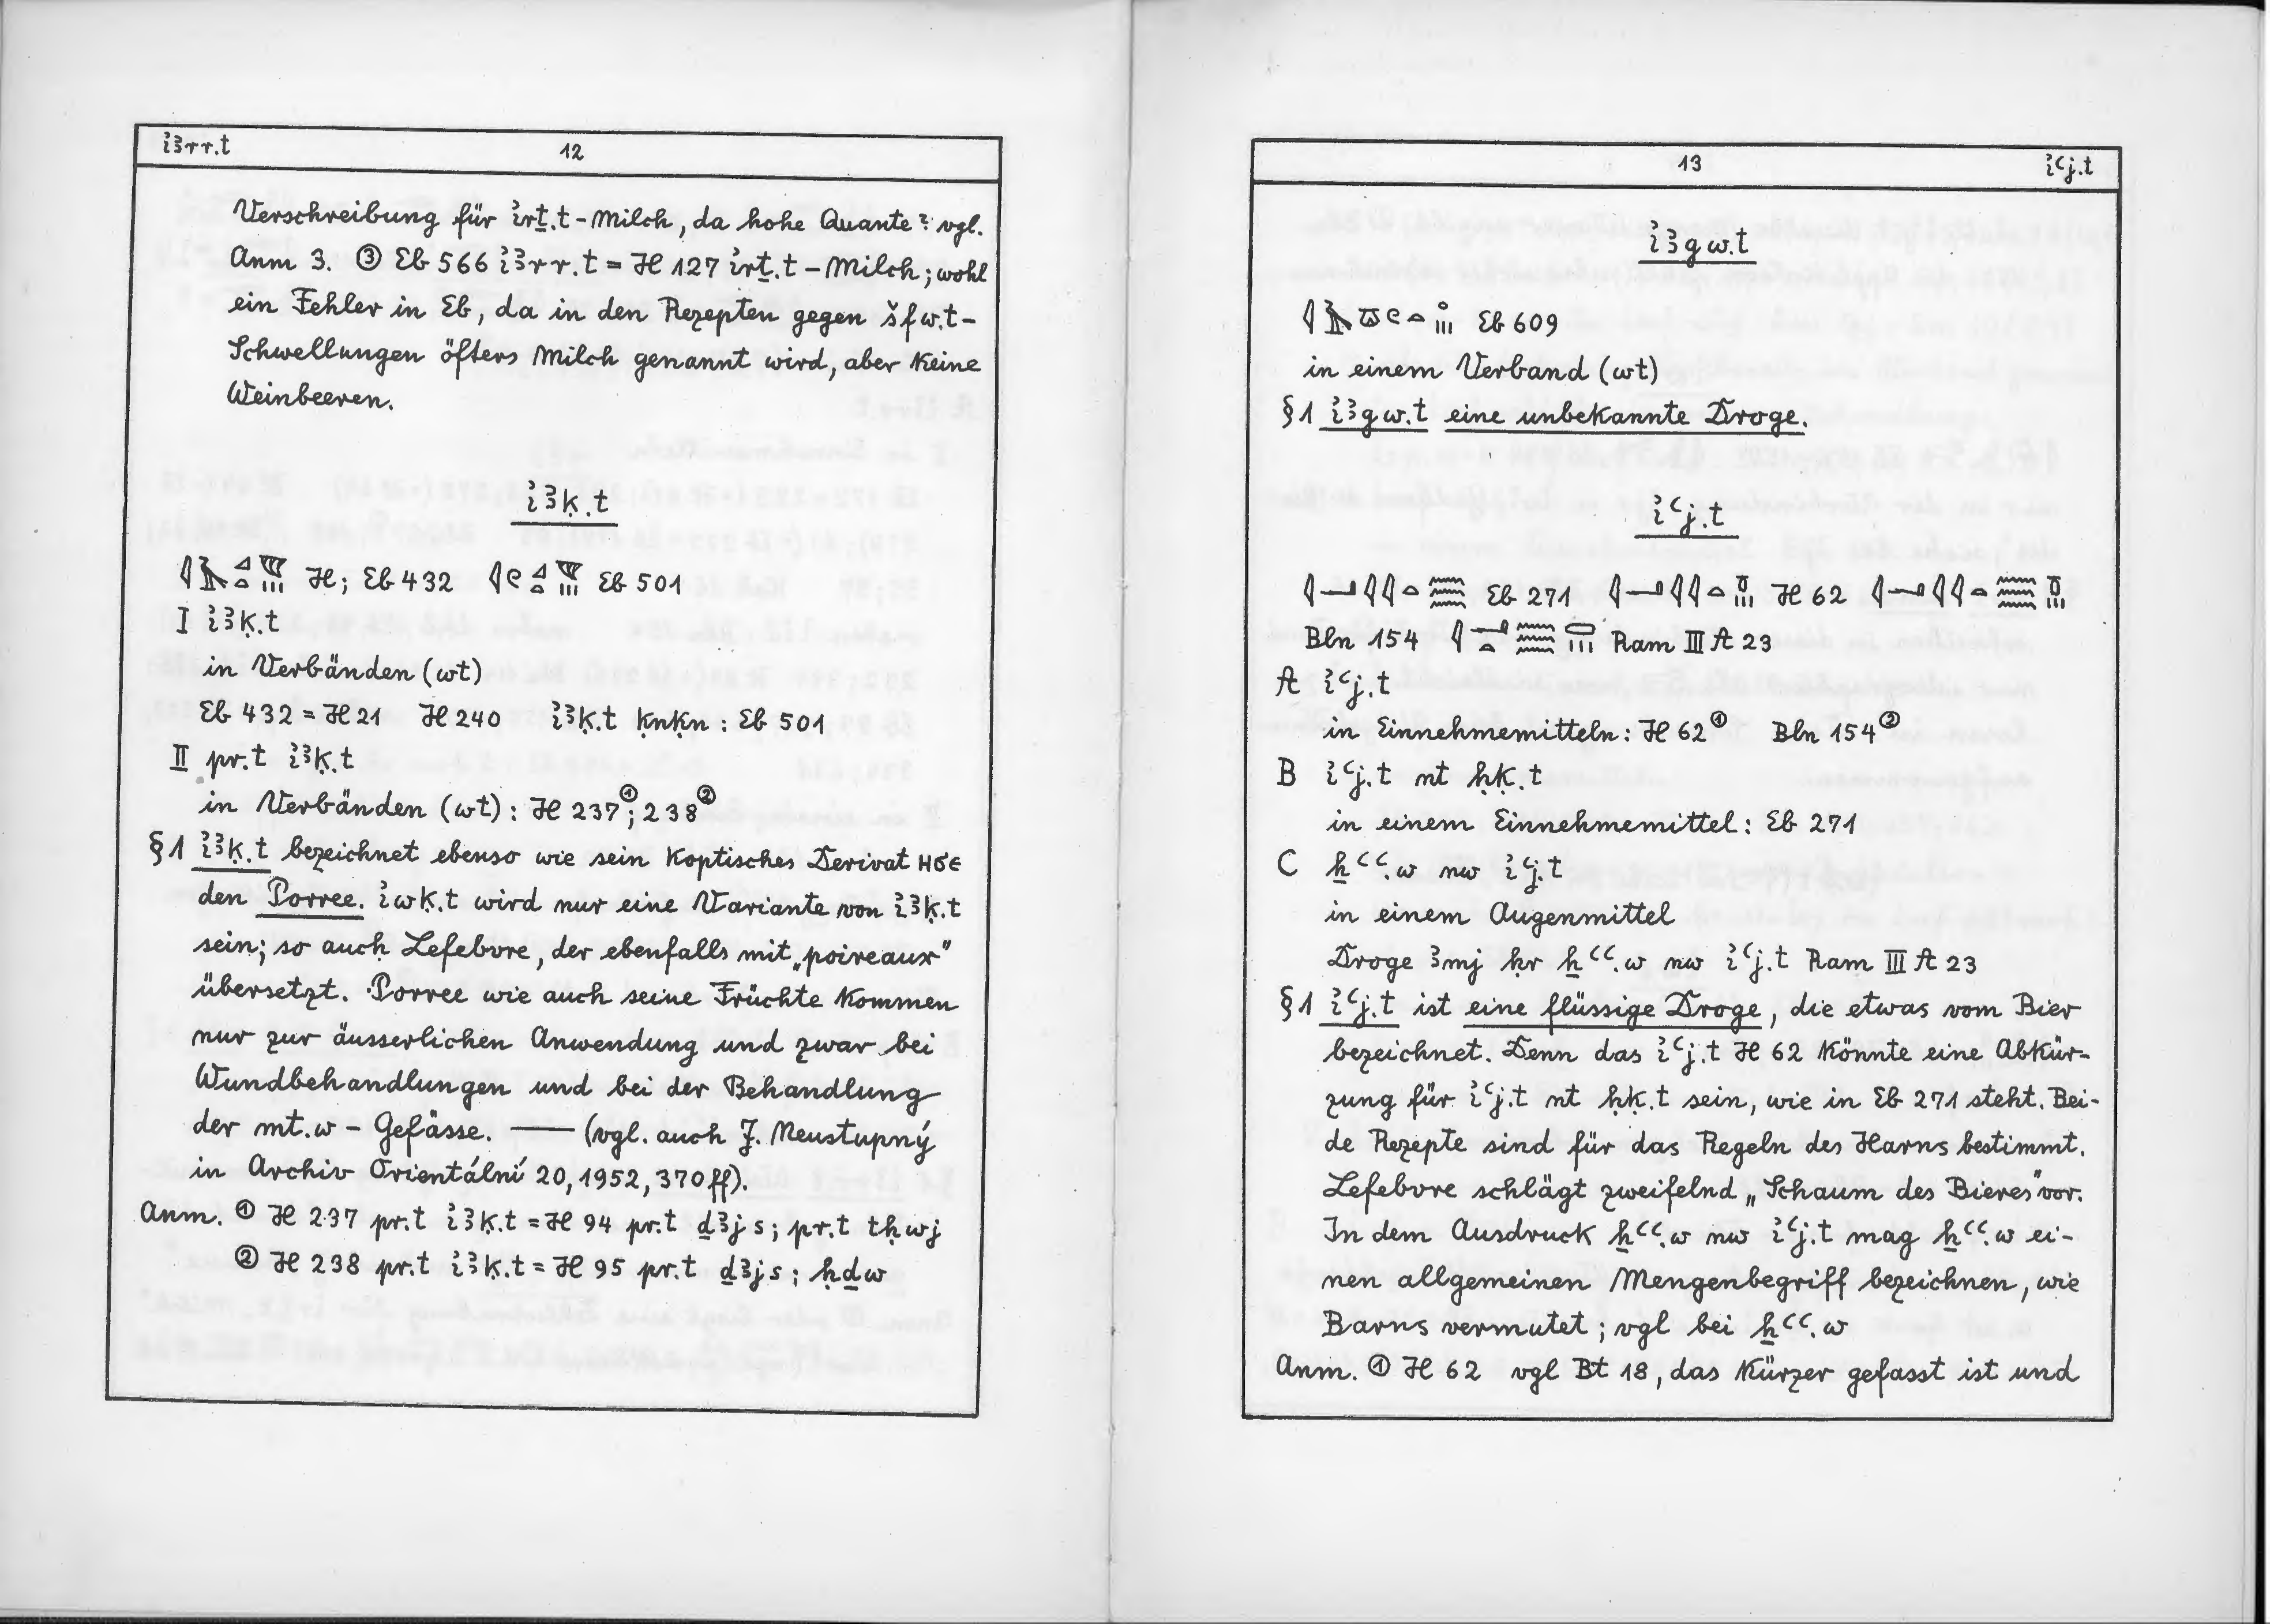 ꞽꜣrr.t 12
Verschreibung für ꞽrṯ.t-Milch, da hohe Quante? vgl.
Anm 3. ③ Eb 566 ꞽꜣrr.t = H 127 ꞽrṯ.t-Milch; wohl
ein Fehler in Eb, da in den Rezepten gegen šfw.t-
Schwellungen öfters Milch genannt wird, aber keine
Weinbeeren.
ꞽꜣḳ.t
H; Eb 432 Eb 501
I ꞽꜣḳ.t
in Verbänden (wt)
Eb 432 = H 21 H 240 ꞽꜣḳ.t ḳnḳn : Eb 501
II pr.t ꞽꜣḳ.t
in Verbänden (wt) : H 237①; 238②
§1 ꞽꜣḳ.t bezeichnet ebenso wie sein koptisches Derivat ⲏϭⲉ
den Porree. ꞽwḳ.t wird nur eine Variante von ꞽꜣḳ.t
sein; so auch Lefebvre, der ebenfalls mit „poireaux"
übersetzt. Porree wie auch seine Früchte kommen
nur zur äusserlichen Anwendung und zwar bei
Wundbehandlungen und bei der Behandlung
der mt.w - Gefässe. — (vgl. auch J. Neustupný
in Archiv Orientální 20, 1952, 370 ff).
Anm. ① H 237 pr.t ꞽꜣḳ.t = H 94 pr.t ḏꜣjs; pr.t tḥwj
② H 238 pr.t ꞽꜣḳ.t = H 95 pr.t ḏꜣjs; ḥḏw
13 ꞽꜥj.t
ꞽꜣgw.t
𓇋𓄿𓎼𓏲𓏏𓈒𓏥 Eb 609
in einem Verband (wt)
§1 ꞽꜣgw.t eine unbekannte Droge.
ꞽꜥj.t
𓇋𓂝𓇋𓇋𓏏𓈗 Eb 271 𓇋𓂝𓇋𓇋𓏏𓏊𓏥 H 62 𓇋𓂝𓇋𓇋𓏏𓈗𓏊𓏥
Bln 154 Ram III A 23
A ꞽꜥj.t
in Einnehmemitteln: H 62① Bln 154②
B ꞽꜥj.t nt ḥḳ.t
in einem Einnehmemittel: Eb 271
C ẖꜥꜥ.w nw ꞽꜥj.t
in einem Augenmittel
Droge ꜣmj ḥr ẖꜥꜥ.w nw ꞽꜥj.t Ram III A 23
§1 ꞽꜥj.t ist eine flüssige Droge, die etwas vom Bier
bezeichnet. Denn das ꞽꜥj.t H 62 könnte eine Abkür-
zung für ꞽꜥj.t nt ḥḳ.t sein, wie in Eb 271 steht. Bei-
de Rezepte sind für das Regeln des Harns bestimmt.
Lefebvre schlägt zweifelnd „Schaum des Bieres" vor.
In dem Ausdruck ẖꜥꜥ.w nw ꞽꜥj.t mag ẖꜥꜥ.w ei-
nen allgemeinen Mengenbegriff bezeichnen, wie
Barns vermutet; vgl bei ẖꜥꜥ.w
Anm. ① H 62 vgl Bt 18, das kürzer gefasst ist und